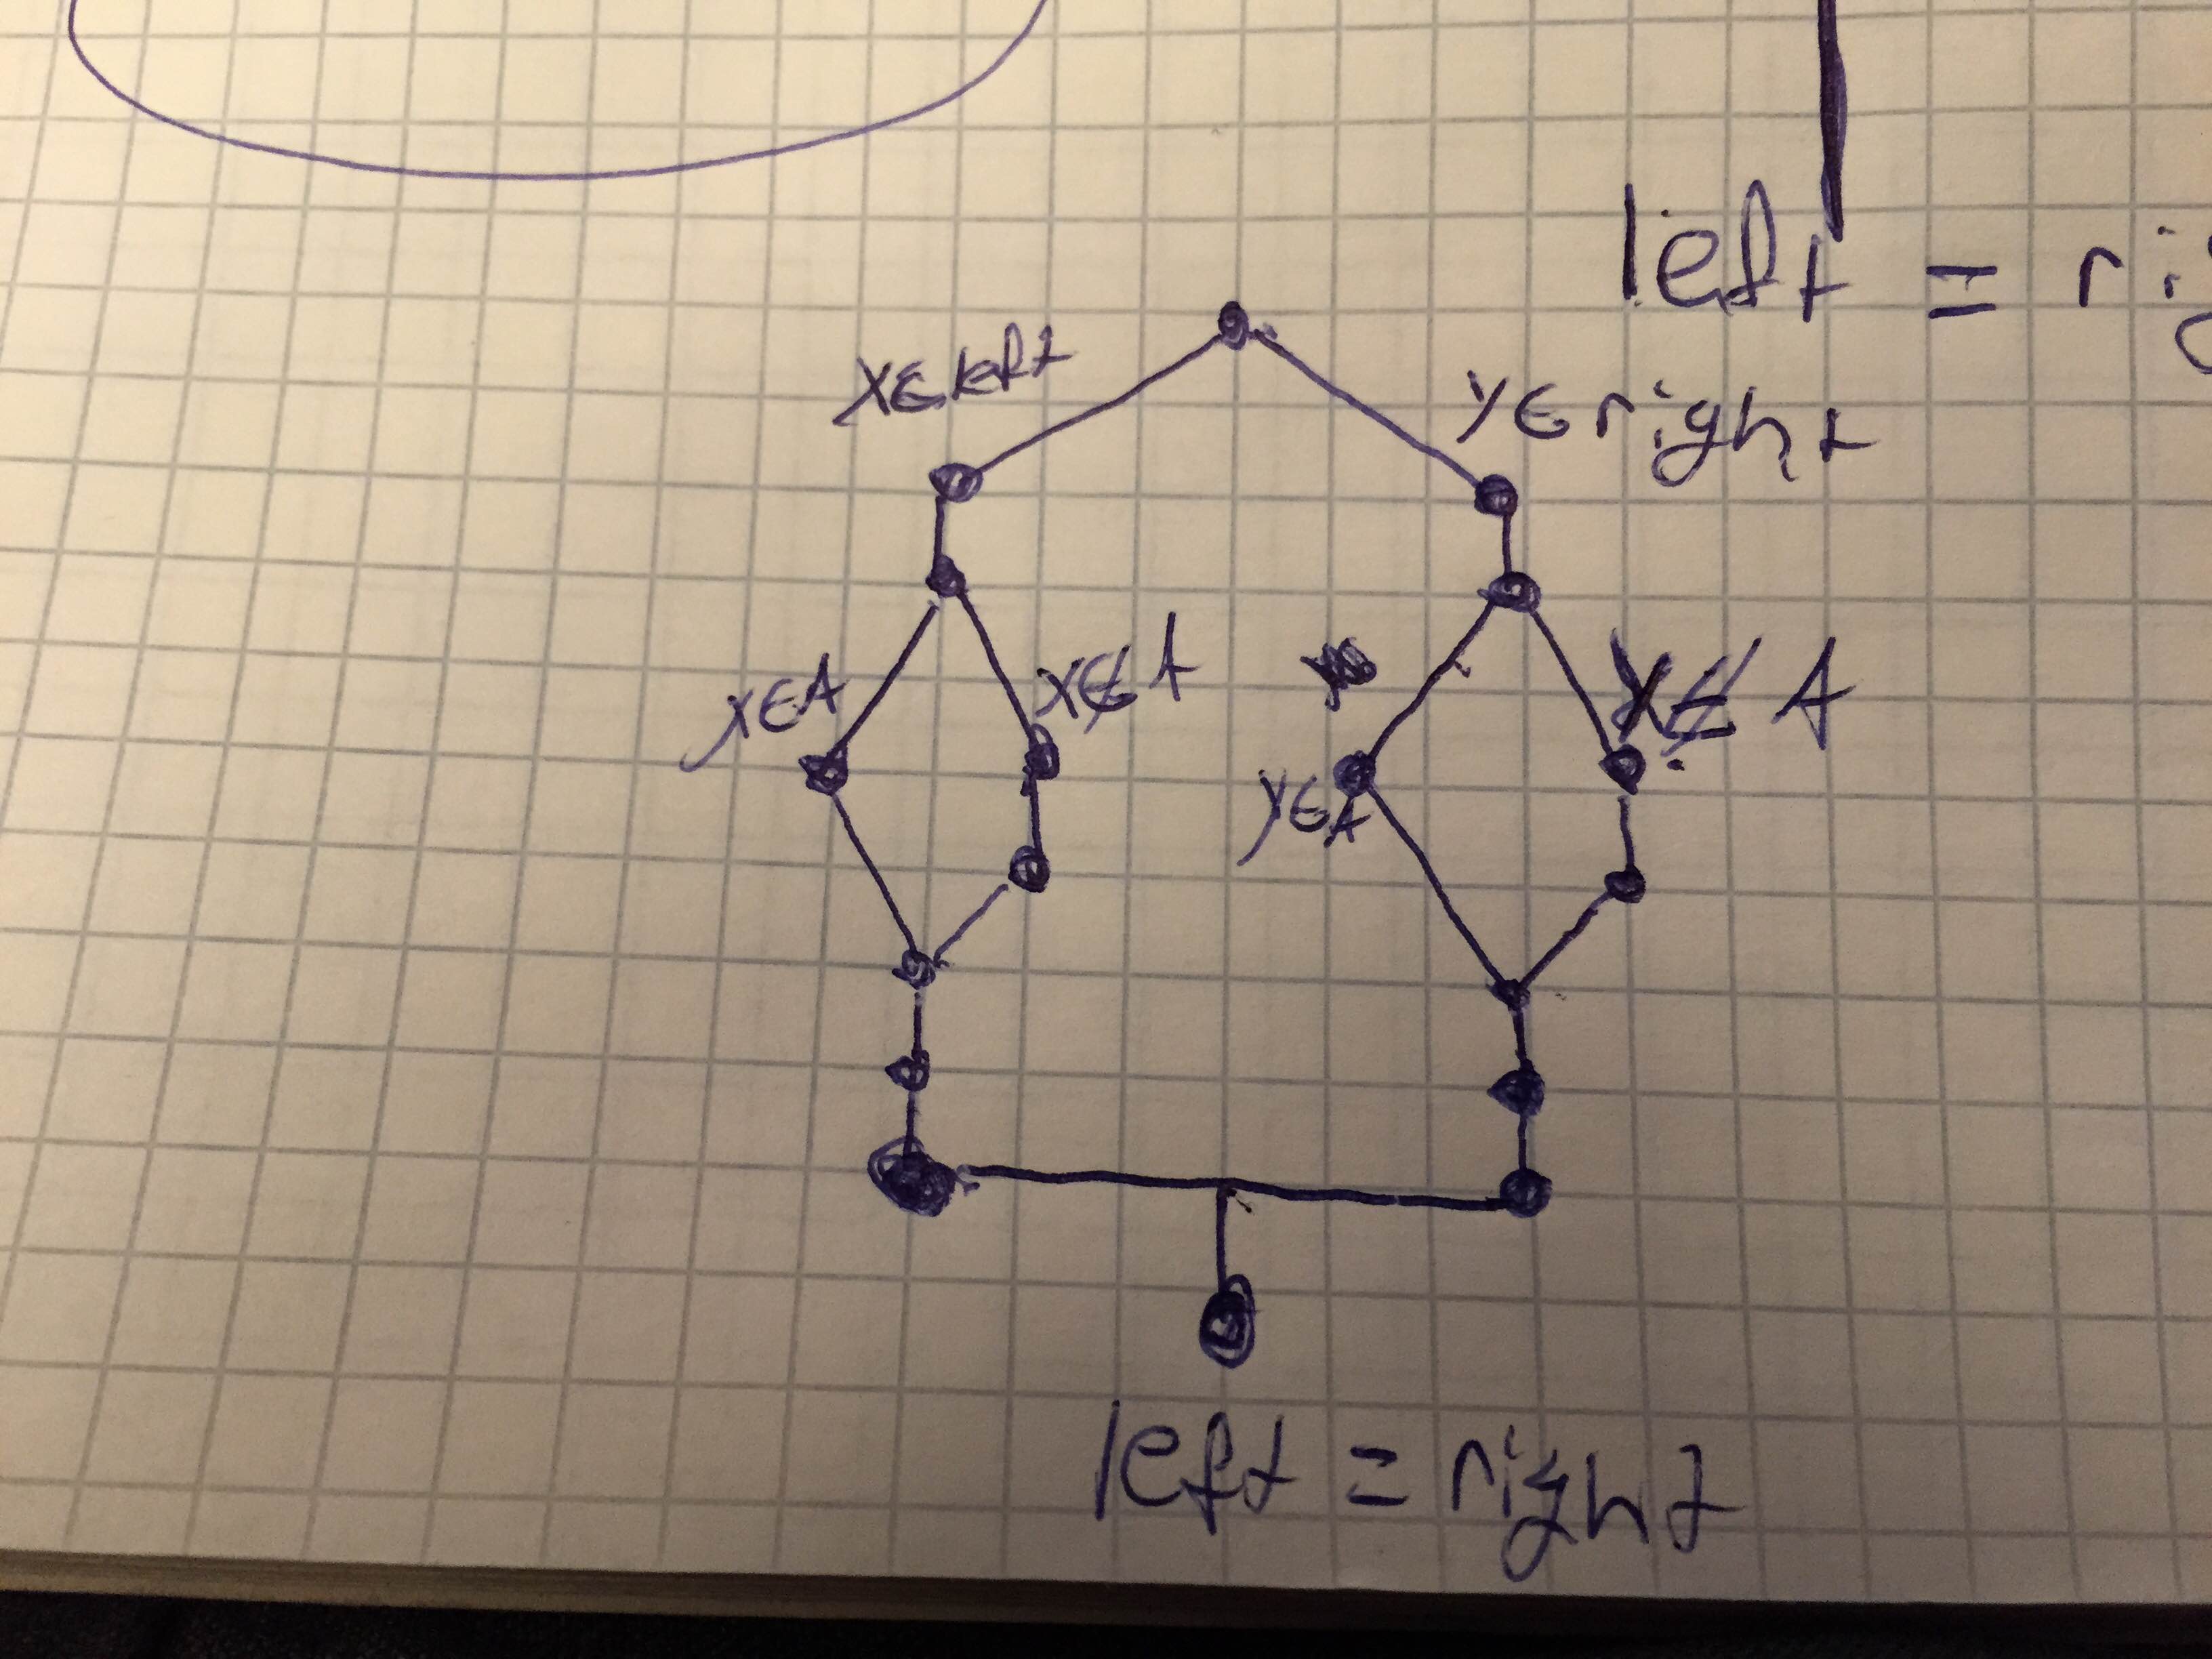 left =
x∈left
y∈right
x∈A
x∉A
y∉A
y∈A
left = right